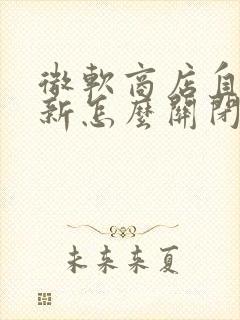 微軟商店自
新怎麼關閉
未来来夏